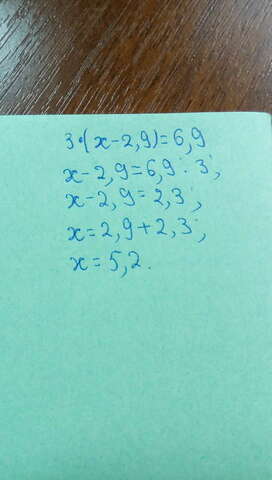 3·(x-2,9)=6,9
x-2,9=6,9 : 3;
x-2,9=2,3;
x=2,9+2,3;
x=5,2.